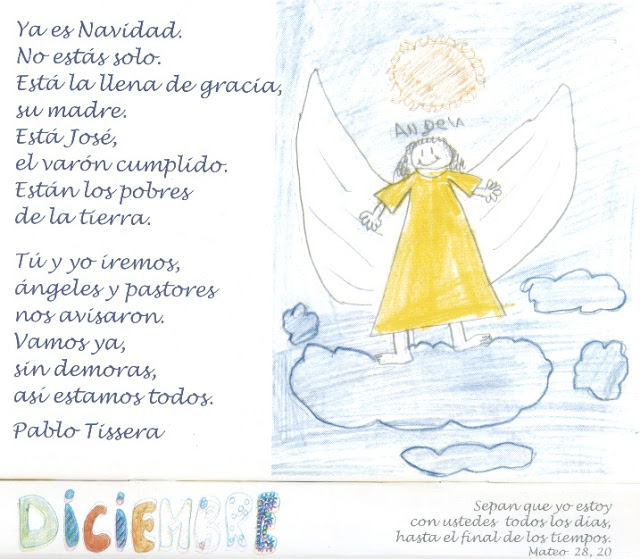 Ya es Navidad.
No estás solo.
Está la llena de gracia,
su madre.
Está José,
el varón cumplido.
Están los pobres
de la tierra.
Tú y yo iremos,
ángeles y pastores
nos avisaron.
Vamos ya,
sin demoras,
así estamos todos.
Pablo Tissera
DICIEMBRE
Sepan que yo estoy
con ustedes todos los días,
hasta el final de los tiempos.
Mateo 28, 20